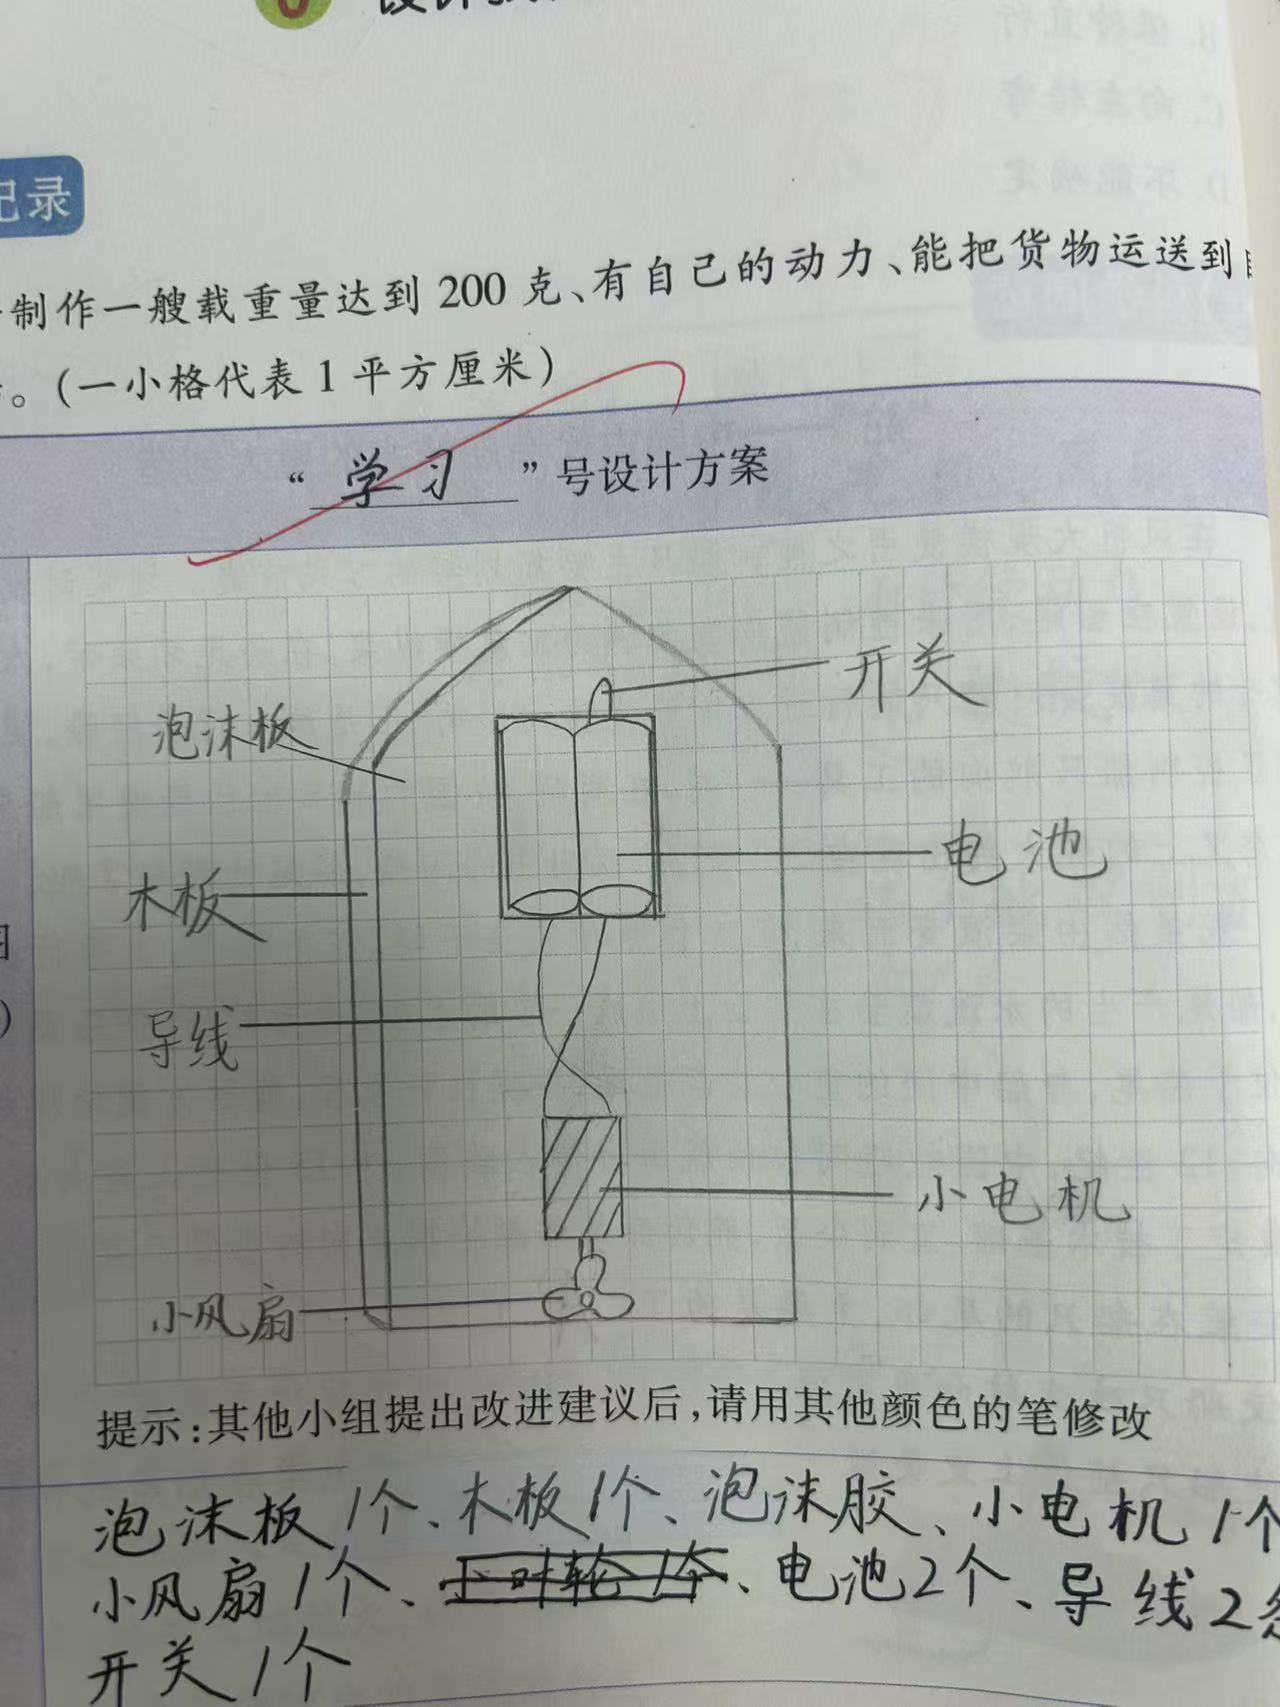 记录
制作一艘载重量达到 200 克、有自己的动力、能把货物运送到
。(一小格代表 1 平方厘米)
“学习”号设计方案
开关
泡沫板
电池
木板
导线
小电机
小风扇
提示:其他小组提出改进建议后,请用其他颜色的笔修改
泡沫板1个、木板1个、泡沫胶、小电机1个
小风扇1个、、电池2个、导线2条
开关1个